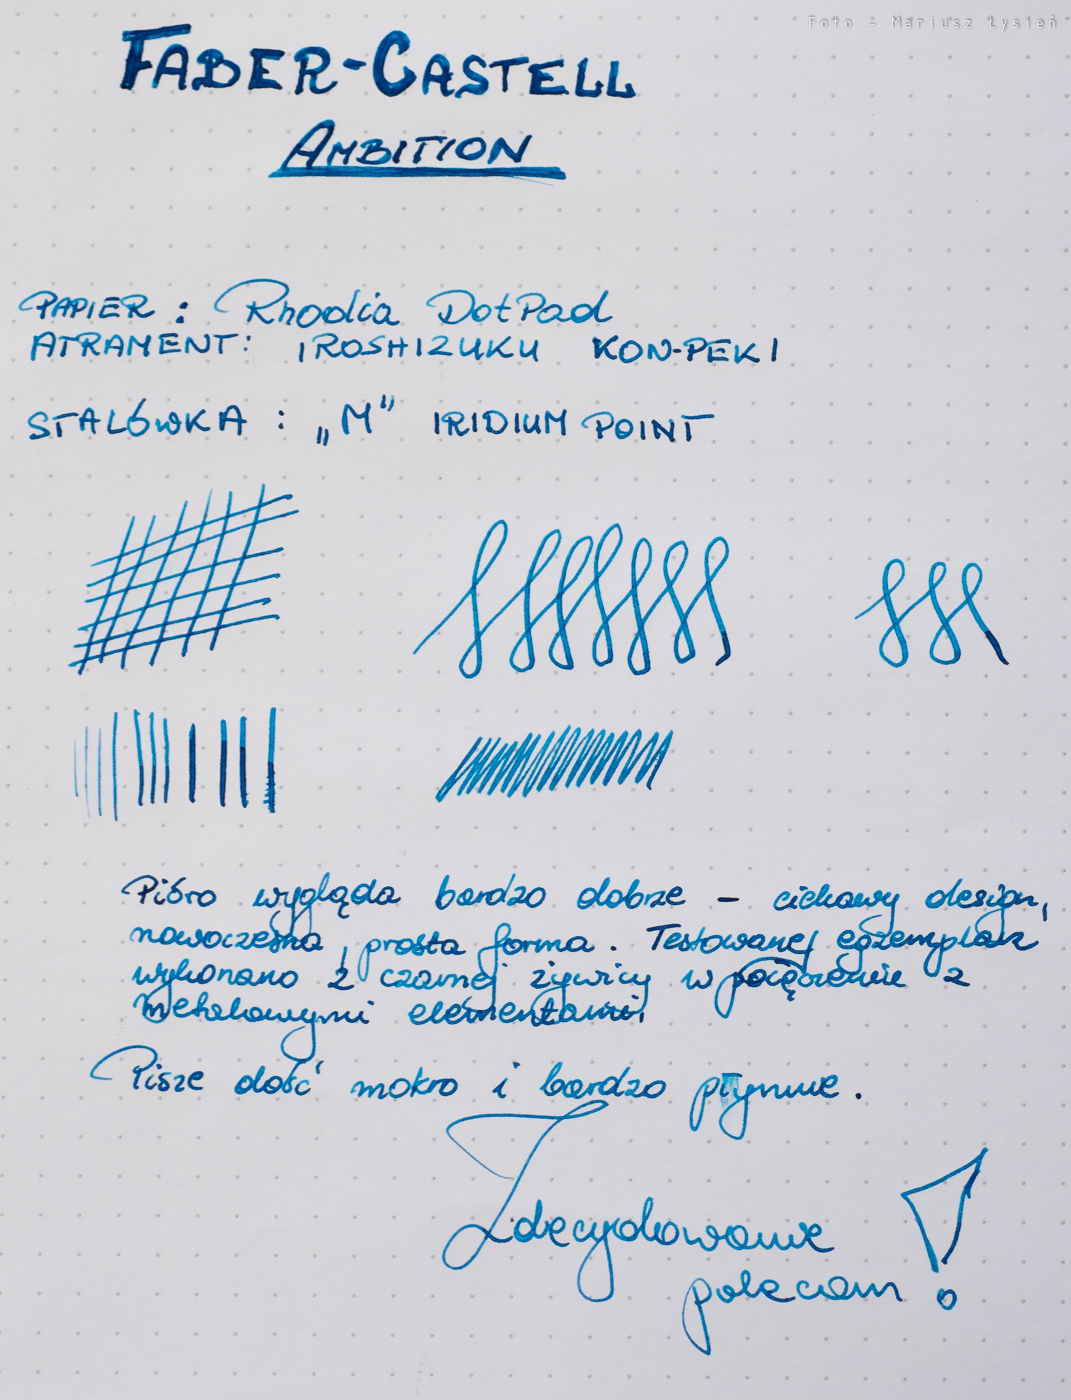 Foto - Mariusz Łysień
FABER-CASTELL
AMBITION
PAPIER : Rhodia DotPad
ATRAMENT: IROSHIZUKU KON-PEKI
STALÓWKA : „M” IRIDIUM POINT
Pióro wygląda bardzo dobrze – ciekawy design,
nowoczesna, prosta forma. Testowanej egzemplarz
wykonano z czarnej żywicy w połączeniu z
metalowymi elementami.
Pisze dość mokro i bardzo płynnie.
Zdecydowanie
polecam !